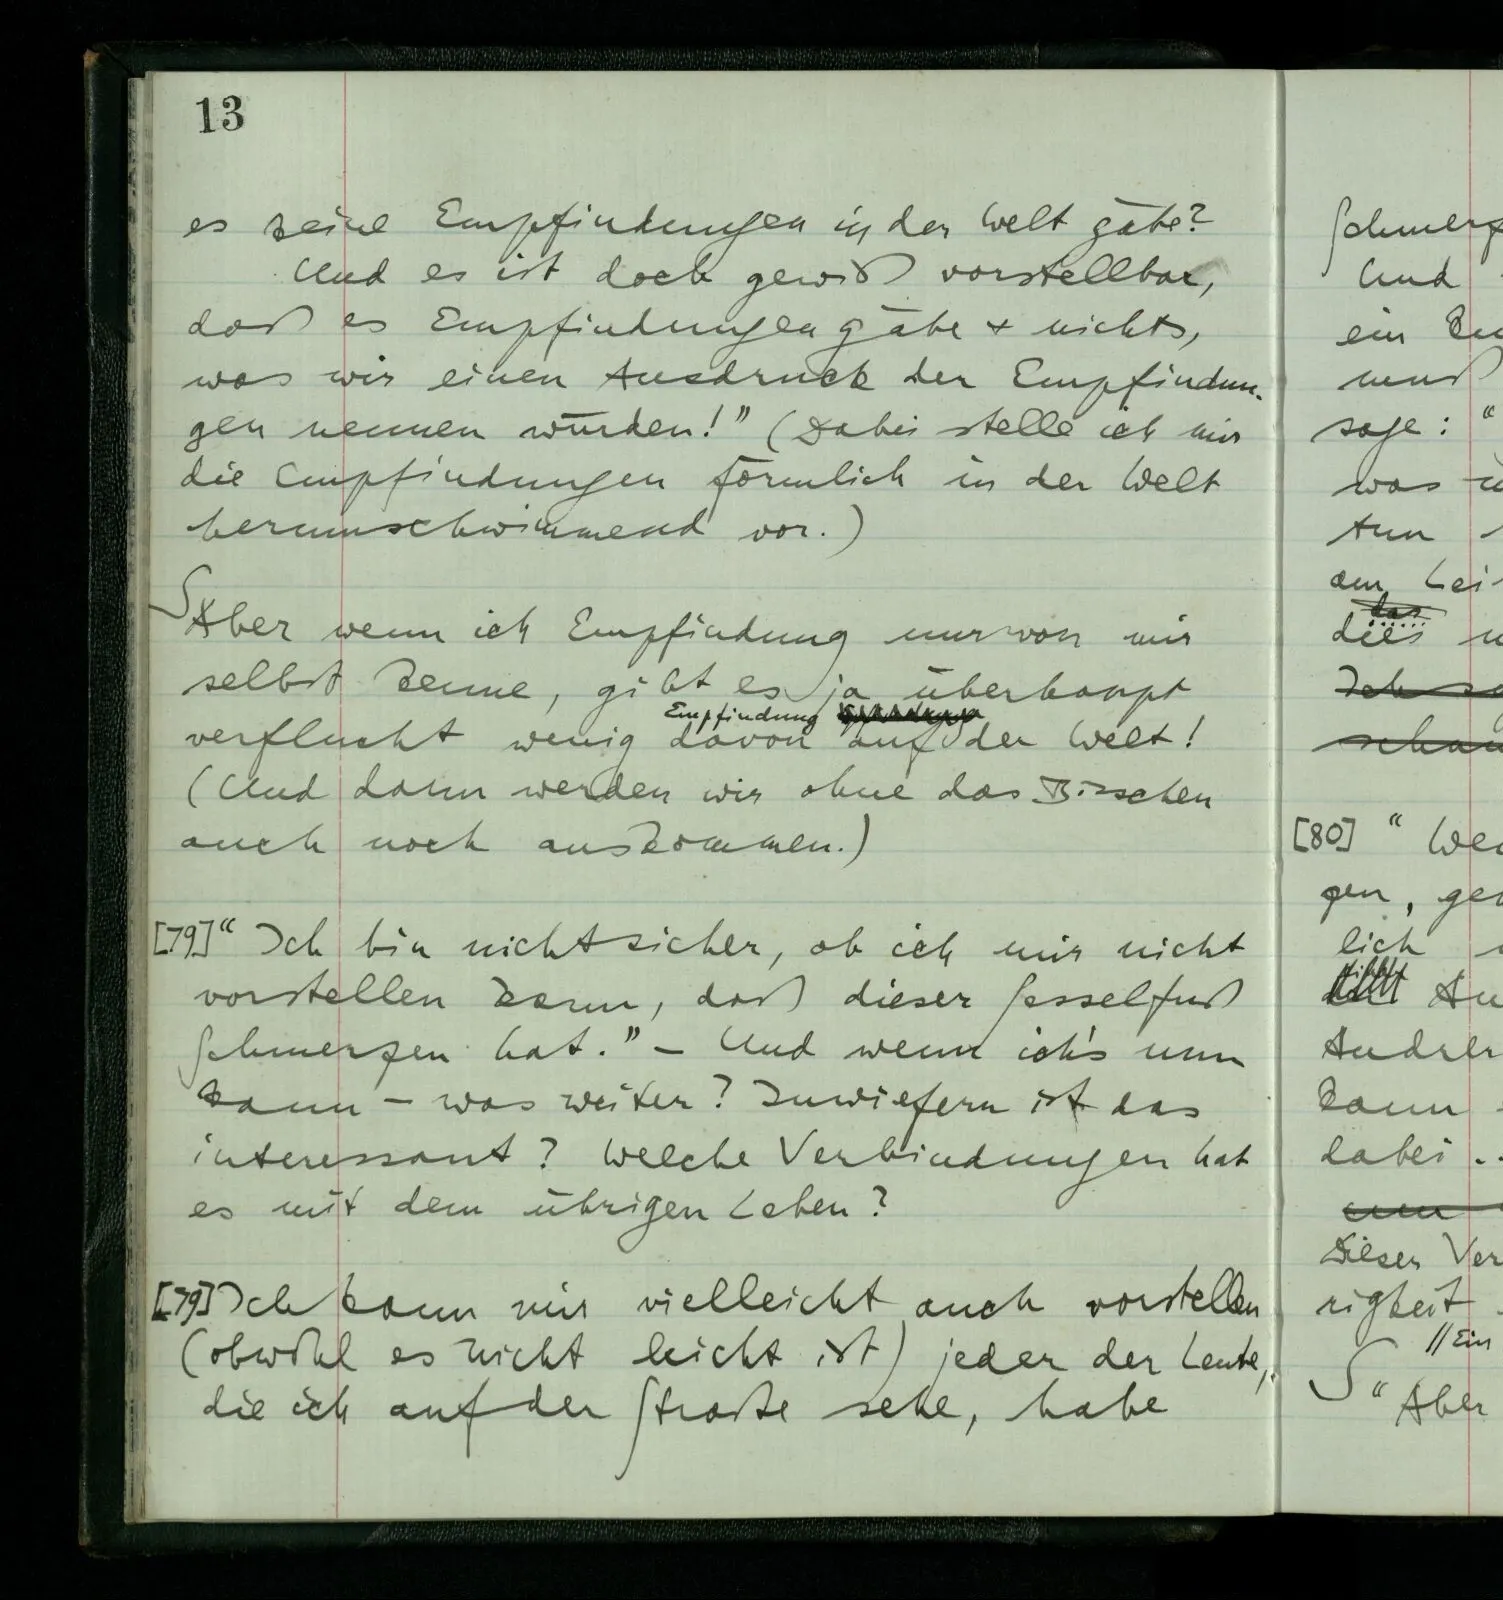 13
es keine Empfindungen in der Welt gäbe?
Und es ist doch gewiß vorstellbar,
daß es Empfindungen gäbe + nichts,
was wir einen Ausdruck der Empfindun-
gen nennen würden!” (Dabei stelle ich mir
die Empfindungen förmlich in der Welt
herumschwimmend vor.)
∫ Aber wenn ich Empfindung nur von mir
selbst kenne, gibt es ja überhaupt
Empfindung
verflucht wenig davon auf der Welt!
(Und dann werden wir ohne das Bisschen
auch noch auskommen.)
[79] “Ich bin nicht sicher, ob ich mir nicht
vorstellen kann, daß dieser Sesselfuß
Schmerzen hat.” – Und wenn ich's nun
kann – was weiter? Inwiefern ist das
interessant? Welche Verbindungen hat
es mit dem übrigen Leben?
[79] Ich kann mir vielleicht auch vorstellen
(obwohl es nicht leicht ist) jeder der Leute,
die ich auf der Straße sehe, habe
Schmerz
Und
ein
muß
sage: “
was
tun
am Lei
das
dies
Ich
schau
[80] “ We
gen, ge
lich
Au
Andrer
kann
dabei ..
Dieser Ver
rigkeit
// Ein
∫ “ Aber